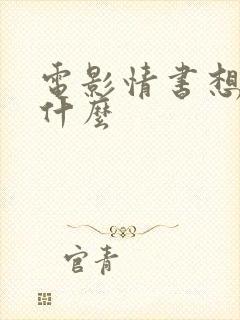 電影情書想
什麼
官青